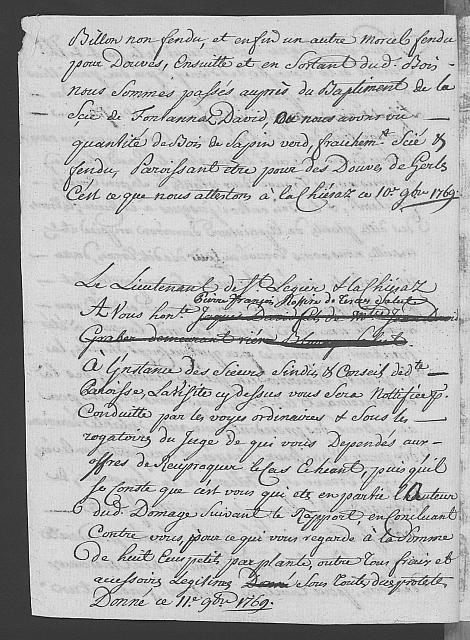 Billon non fendu, et enfin un autre Morcel fendu
pour Douves, Ensuitte et en Sortant du d. Bois
nous Sommes passés auprès du Baptiment de la
Scie de Fontanna David, ou nous avons vu
quantité de Bois de Sapin verd, fraichemt. Scié &
fendu, Paroissant etre pour des Douves de Gerles
C'est ce que nous attestons à la Chiésaz ce 10e. 9bre 1769.
Le Lieutenant de St. Legier & la Chiésaz
Pierre François
A Vous honte.
Graber demeurant
à l'instance des Sieurs Sindic & Conseil de dte.
Paroisse, La Visite cy dessus vous Sera Nottifiée &
Conduitte par les voyes ordinaires & Sous les
rogatoires du Juge de qui vous Dependés aux
offres de Reciproquer le Cas Echeant, puis qu'il
se Conste que c'est vous qui ete en partie l'hauteur
du d. Domage Suivant le Rapport, en Concluant
Contre vous, pour ce qui vous regarde à la Somme
de huit Ecus petits par plante, outre Tous frais et
accessoires Legitimes Sous Toutes dues protestes
Donné ce 11e. 9bre 1769.